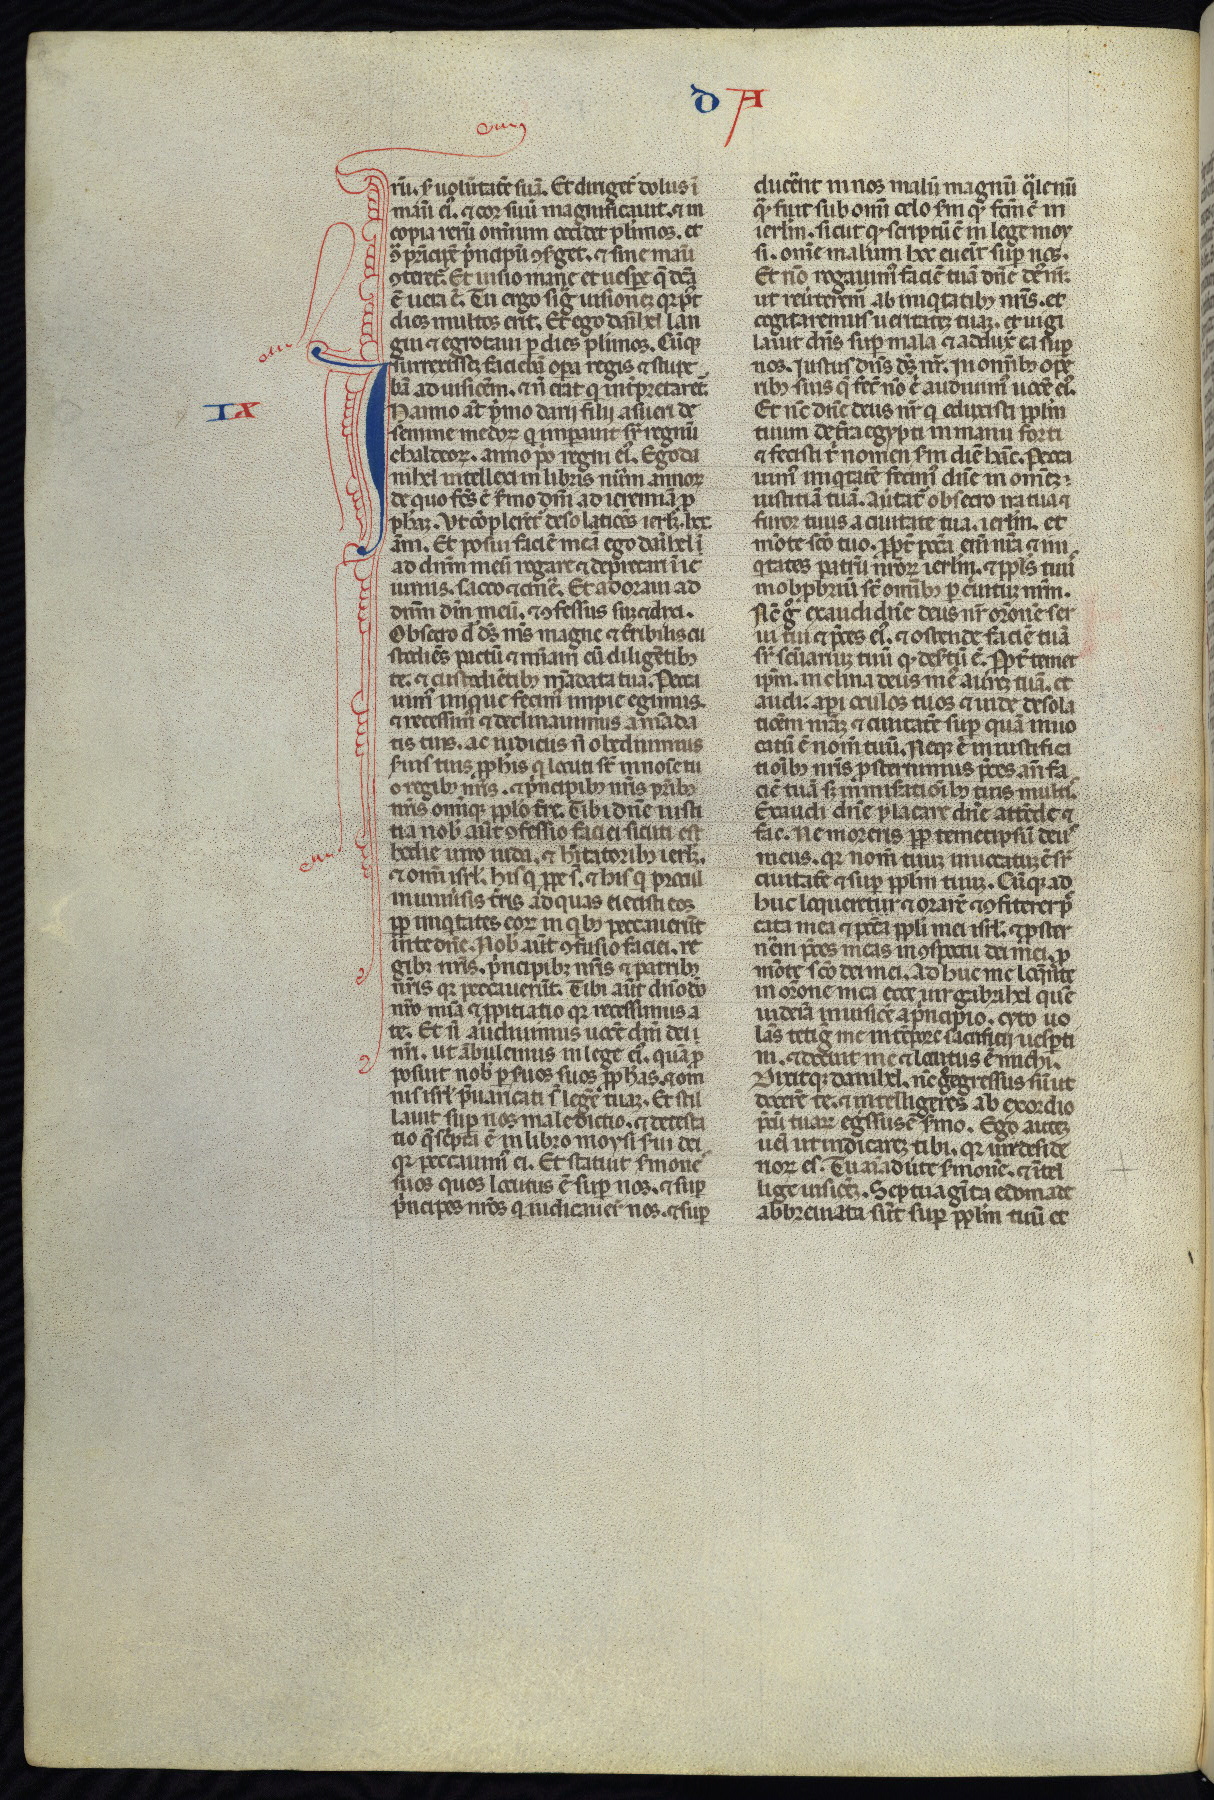 D A
rū. s̄ uolūtatē suā. Et dirigeť dolus ī
manū eiꝰ. ⁊ cor suū magnificauit. ⁊ in
copia rerū omnium occidet plꝛimos. et
ꝯ̄ pꝛincipē pꝛincipū ꝯsꝛget. ⁊ sine manu
ꝯtereť. Et uisio mane et uespe q̄ dc̄a
ē uera ē. Tu ergo sigͣ uisionē qꝛ pꝰt
dies multos erit. Et ego danihel lan
gui ⁊ egrotaui p dies plꝛimos. Cūqꝫ
surrexissē faciebā opa regis ⁊ stupe
bā ad uisionē. ⁊ n̄ erat q intꝛpꝛetareť.
IX
I
N anno aūt pꝛimo darii filij asueri de
semine medoꝝ q impauit sꝛ regnū
chaldeoꝝ. anno p̄o regni eiꝰ. Ego da
nihel intellexi in libris nūm annoꝝ
de quo fcūs ē s̄mo dn̄i ad ieremiā p
phāꝫ. Ut cōplerēť desolationis ierlꝫ. lxx
an̄i. Et posui faciē meā ego danihel ī
ad dn̄m meū rogare ⁊ depꝛecari ī ie
iuniis. sacco ⁊ cinē. Et adoraui ad
dn̄m dm̄ meū. ⁊ ꝯfessus suꝫ ⁊ dixi.
Obsecro dn̄e dꝰ magne ⁊ tribilis cu
stodiēs pactū ⁊ mīam cū diligētibꝰ
te. ⁊ custodiētibꝰ mādata tua. Pecca
uimꝰ inique fecimꝰ impie egimus.
⁊ recessimꝰ ⁊ declinauimus a māda
tis tuis. ac iudiciis n̄ obediuimus
s̄uis tuis pphis q locuti st̄ in noīe tu
o regibꝰ nr̄is. ⁊ pꝛincipibꝰ nr̄is pꝛibꝰ
nr̄is omīqꝫ pplo tr̄e. Tibi dn̄e iusti
tia nob aūt ꝯfessio faciei sicuti est
hodie uiro iuda. ⁊ hītatoribꝰ ierlꝫ.
⁊ omī isrl. his q ppe s̄. ⁊ his q pꝛocul
in uniūsis tr̄is ad quas eiecisti eos
pp iniqtates eoꝝ in qbꝰ peccauerūt
in te dn̄e. Nob aūt ꝯfusio faciei. re
gibꝫ nr̄is. pꝛincipibꝫ nr̄is ⁊ patribꝰ
nr̄is qꝛ peccauerūt. Tibi aūt dn̄o dō
nr̄o mīa ⁊ ppitiatio qꝛ recessimus a
te. Et n̄ audiuimus uocē dn̄i dei i
nr̄i. ut ambulemus in lege eiꝰ. quā p
posuit nob p suos suos pphas. ⁊ om
nis isrl pꝛuaricati sꝰ legē tuaꝫ. Et stil
lauit sup nos maledictio. ⁊ detesta
tio q̄ scꝛpta ē in libro moysi s̄ui dei
qꝛ peccauimꝰ ei. Et statuit s̄mones
suos quos locutus ē sup nos. ⁊ sup
pꝛincipes nr̄os q iudicauer̄ nos. ⁊ sup
ducerēt in nos malū magnū q̄le nū
qͣ fuit sub omī celo s̄m qꝫ fcm̄ ē in
ierlm̄. sicut qꝫ scriptū ē in lege moy
si. omne malum hec euenit sup nos.
Et nō rogauimꝰ faciē tuā dn̄e dē nr̄.
ut reūteremꝛ ab iniqtatibꝰ nr̄is. et
cogitaremus ueritateꝫ tuaꝫ. et uigi
lauit dn̄s sup mala ⁊ adduxit ea sup
nos. Iustus dn̄s dꝰ nr̄. in omībꝰ ope
ribꝰ suis q̄ fecit nō ē audiuimꝰ uocē eiꝰ.
Et nc̄ dn̄e deus nr̄ q eduxisti pplm̄
tuum de tr̄a egypti in manu forti
⁊ fecisti t̄ nomen s̄m diē hūc. Pecca
uimꝰ iniqtatē fecimꝰ dn̄e in omneꝫ
iustitiā tuā. Auertat̄ obsecro ira tua ⁊
furoꝛ tuus a ciuitate tua. ierlm̄. et
mōte scō tuo. ppt̄ pctā enī nr̄a ⁊ ini
qtates patrū nr̄oꝝ ierlm̄. ⁊ ppls̄ tuus
in obpbriū st̄ omībꝰ p circuitū nr̄m.
Nc̄ gͦ exaudi dn̄e deus nr̄ orōnē ser
ui tui ⁊ p̄ces eiꝰ. ⁊ ostende faciē tuā
sꝛ scūariuꝫ tuū qꝫ destū ē. Ppt̄ temet
ipm̄. inclina deus mꝰ aureꝫ tuā. et
audi. apei oculos tuos ⁊ uide desola
tionem nr̄aꝫ ⁊ ciuitatē sup quā inuo
catū ē nom̄ tuū. Neqꝫ ē in iustifica
tionibꝰ nr̄is pꝛosternimus p̄ces an̄ fa
ciē tuā sꝫ ī miserationibꝰ tuis multꝭ.
Exaudi dn̄e placare dn̄e attēde ⁊
fac. Ne moreris pp temetipsū deus
meus. qꝛ nom̄ tuuꝫ inuocatuꝫ ē sꝛ
ciuitatē ⁊ sup pplm̄ tuuꝫ. Cūqꝫ ad
huc loqueretur ⁊ orarē ⁊ ꝯfiterer pc̄
cata mea ⁊ pctā ppli mei isrl. ⁊ pster
nēm p̄ces meas in ꝯspectu dei mei. p
mōte scō dei mei. Adhuc me loq̄nte
in orōne mea ecce uir gabrihel quē
uideā in uisione a pꝛincipio. cyto uo
lās tetigͥ me in tēpore sacrificij uespti
ni. ⁊ docuit me ⁊ locutus ē michi.
Dixitqꝫ danihel. nc̄ egressus sū ut
docerē te. ⁊ intelligeres ab exordio
p̄cū tuaꝝ egssus ē s̄mo. Ego auteꝫ
ueni ut indicareꝫ tibi. qꝛ uir deside
rioꝝ es. Tu aūt aduerte s̄monē. ⁊ ītel
lige uisionē. Septuagīta edomade
abbreuiata sūt sup pplm̄ tuū et